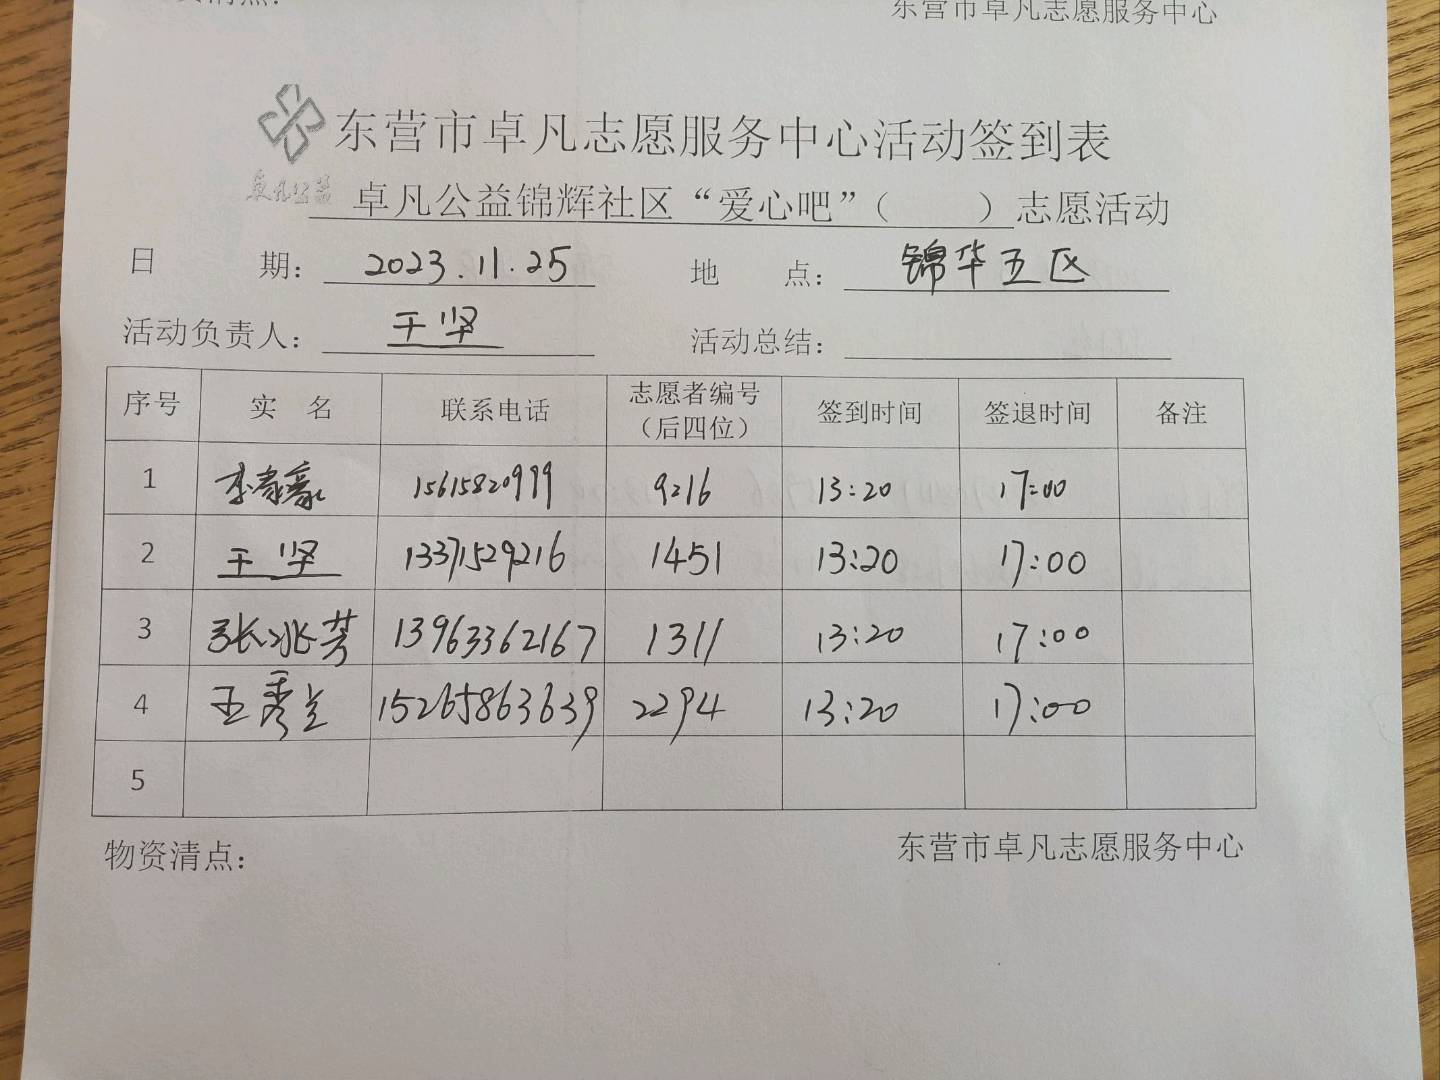 东营市卓凡志愿服务中心
东营市卓凡志愿服务中心活动签到表
卓凡公益
卓凡公益锦辉社区“爱心吧”（　　）志愿活动
日　期：2023.11.25 地　点：锦华五区
活动负责人：王坚 活动总结：
序号 实　名 联系电话 志愿者编号（后四位） 签到时间 签退时间 备注
1 李 15615820999 9216 13:20 17:00
2 王坚 13371529216 1451 13:20 17:00
3 张兆芳 13963362167 1311 13:20 17:00
4 王秀兰 15265863639 2294 13:20 17:00
5
物资清点： 东营市卓凡志愿服务中心